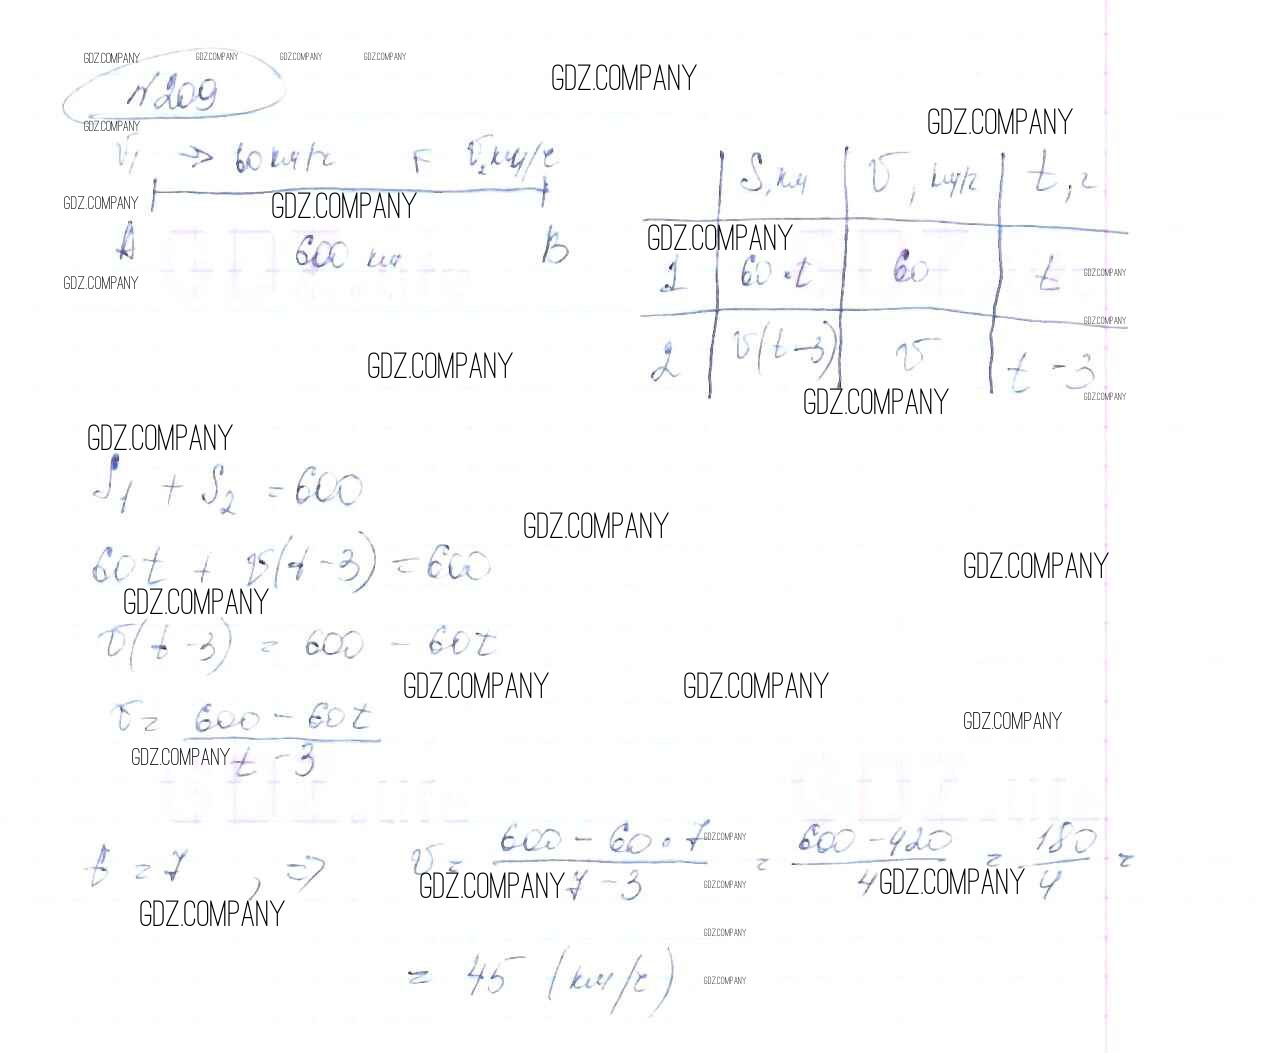 GDZ.COMPANY GDZ.COMPANY GDZ.COMPANY GDZ.COMPANY
GDZ.COMPANY
№209
GDZ.COMPANY
GDZ.COMPANY
V₁ → 60 км/ч V₂ км/ч
S, км V, км/ч t, ч
GDZ.COMPANY
GDZ.COMPANY
GDZ.COMPANY
A 600 км B
1 60·t 60 t
GDZ.COMPANY
GDZ.COMPANY
GDZ.COMPANY
2 V(t-3) V t-3
GDZ.COMPANY
GDZ.COMPANY
GDZ.COMPANY
GDZ.COMPANY
S₁ + S₂ = 600
GDZ.COMPANY
60t + V(t-3) = 600
GDZ.COMPANY
GDZ.COMPANY
V(t-3) = 600 - 60t
GDZ.COMPANY GDZ.COMPANY
V = (600 - 60t)/(t - 3)
GDZ.COMPANY
GDZ.COMPANY
GDZ.life GDZ.life
t = 7, => V = (600 - 60·7)/(7 - 3) = (600 - 420)/4 = 180/4 =
GDZ.COMPANY
GDZ.COMPANY GDZ.COMPANY GDZ.COMPANY
GDZ.COMPANY
GDZ.COMPANY
= 45 (км/ч)
GDZ.COMPANY